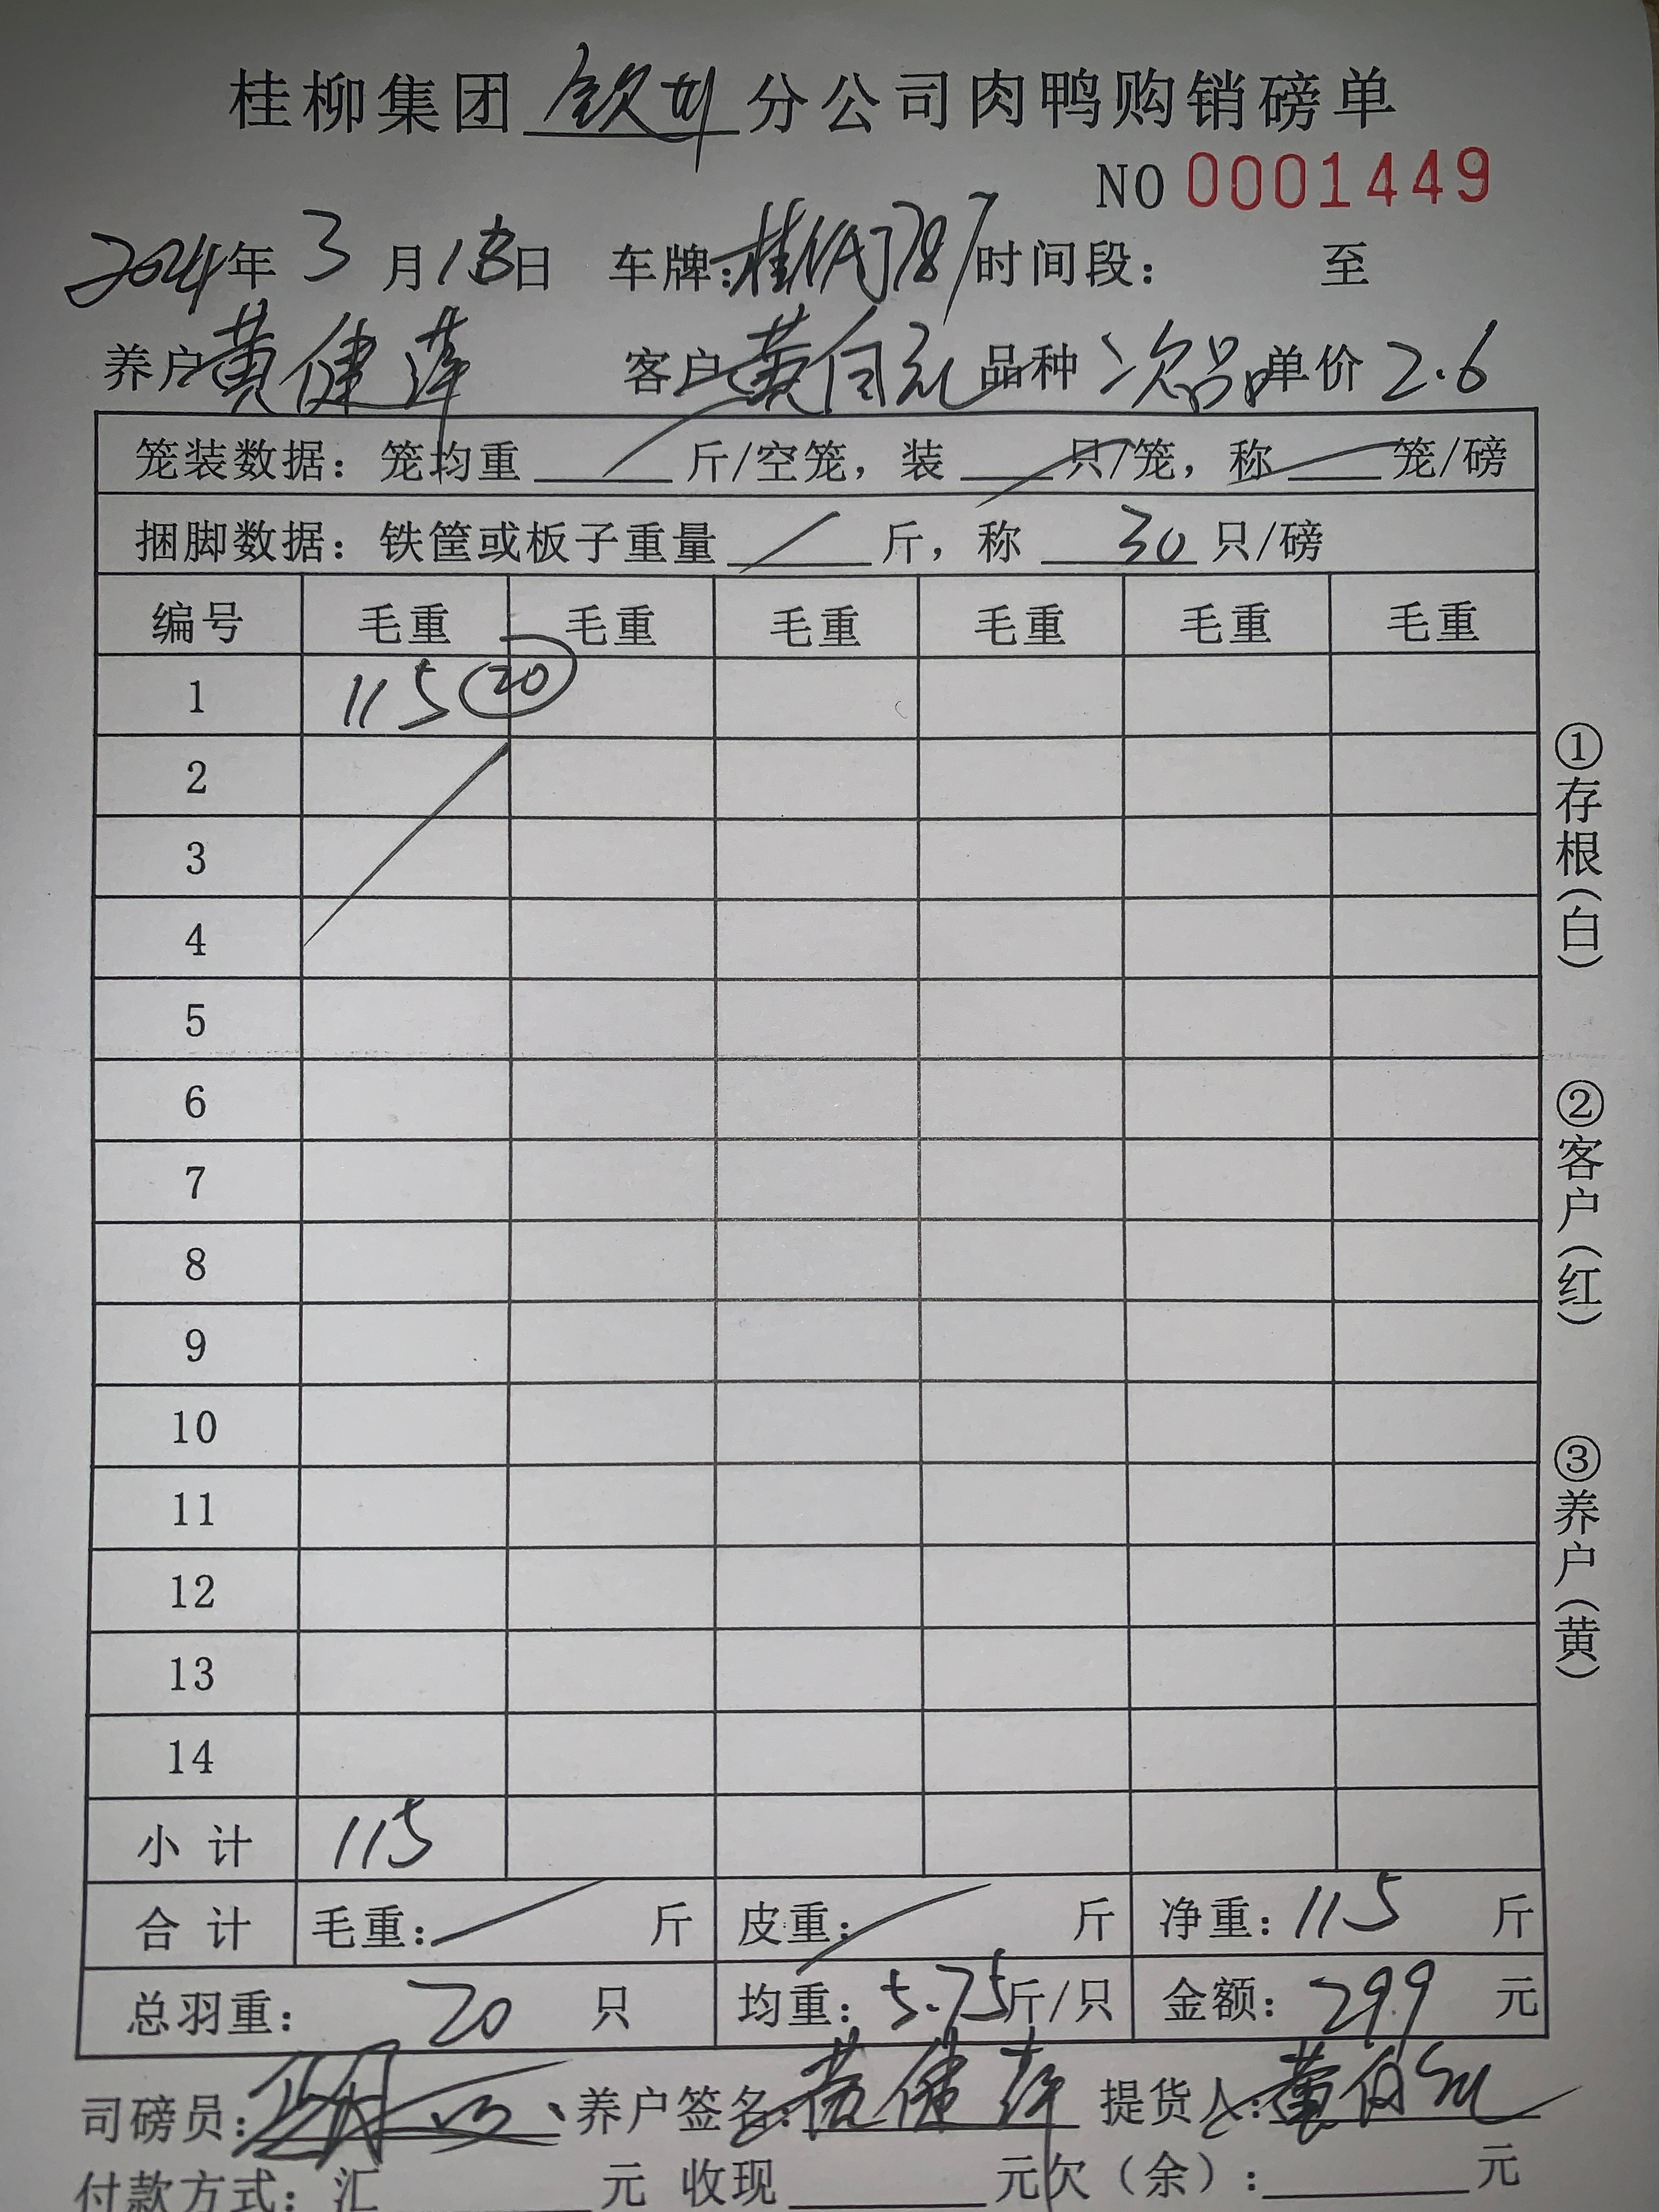 桂柳集团 钦州 分公司肉鸭购销磅单
NO 0001449
2024年 3 月 18日 车牌: 787 时间段: 至
养户 黄健萍 客户 黄 品种 次品 单价 2.6
笼装数据: 笼均重 斤/空笼, 装 只/笼, 称 笼/磅
捆脚数据: 铁筐或板子重量 / 斤, 称 30 只/磅
编号 毛重 毛重 毛重 毛重 毛重 毛重
1 115 20
2
3
4
5
6
7
8
9
10
11
12
13
14
小计 115
合计 毛重: 斤 皮重: 斤 净重: 115 斤
总羽重: 20 只 均重: 5.75 斤/只 金额: 299 元
司磅员: 养户签名: 黄健萍 提货人: 黄
付款方式: 汇 元 收现 元 欠(余): 元
①存根(白)
②客户(红)
③养户(黄)